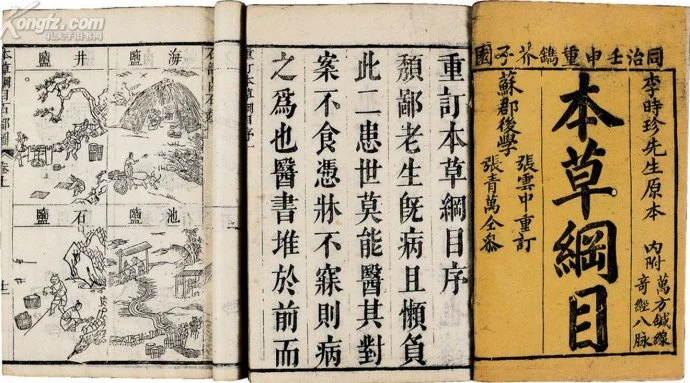 同治壬申重鐫芥子園
李時珍先生原本
內附
萬方鍼線
奇經八脉
本草綱目
張雲中重訂
蘇郡後學
張青萬仝參
重訂本草綱目序
頹鄙老生旣病且懶負
此二患世莫能醫其對
案不食憑牀不寐則病
之爲也醫書堆於前而
重訂本草綱目序
海鹽
井鹽
池鹽
石鹽
本草綱目石部圖
Kongfz.com
孔夫子旧书网